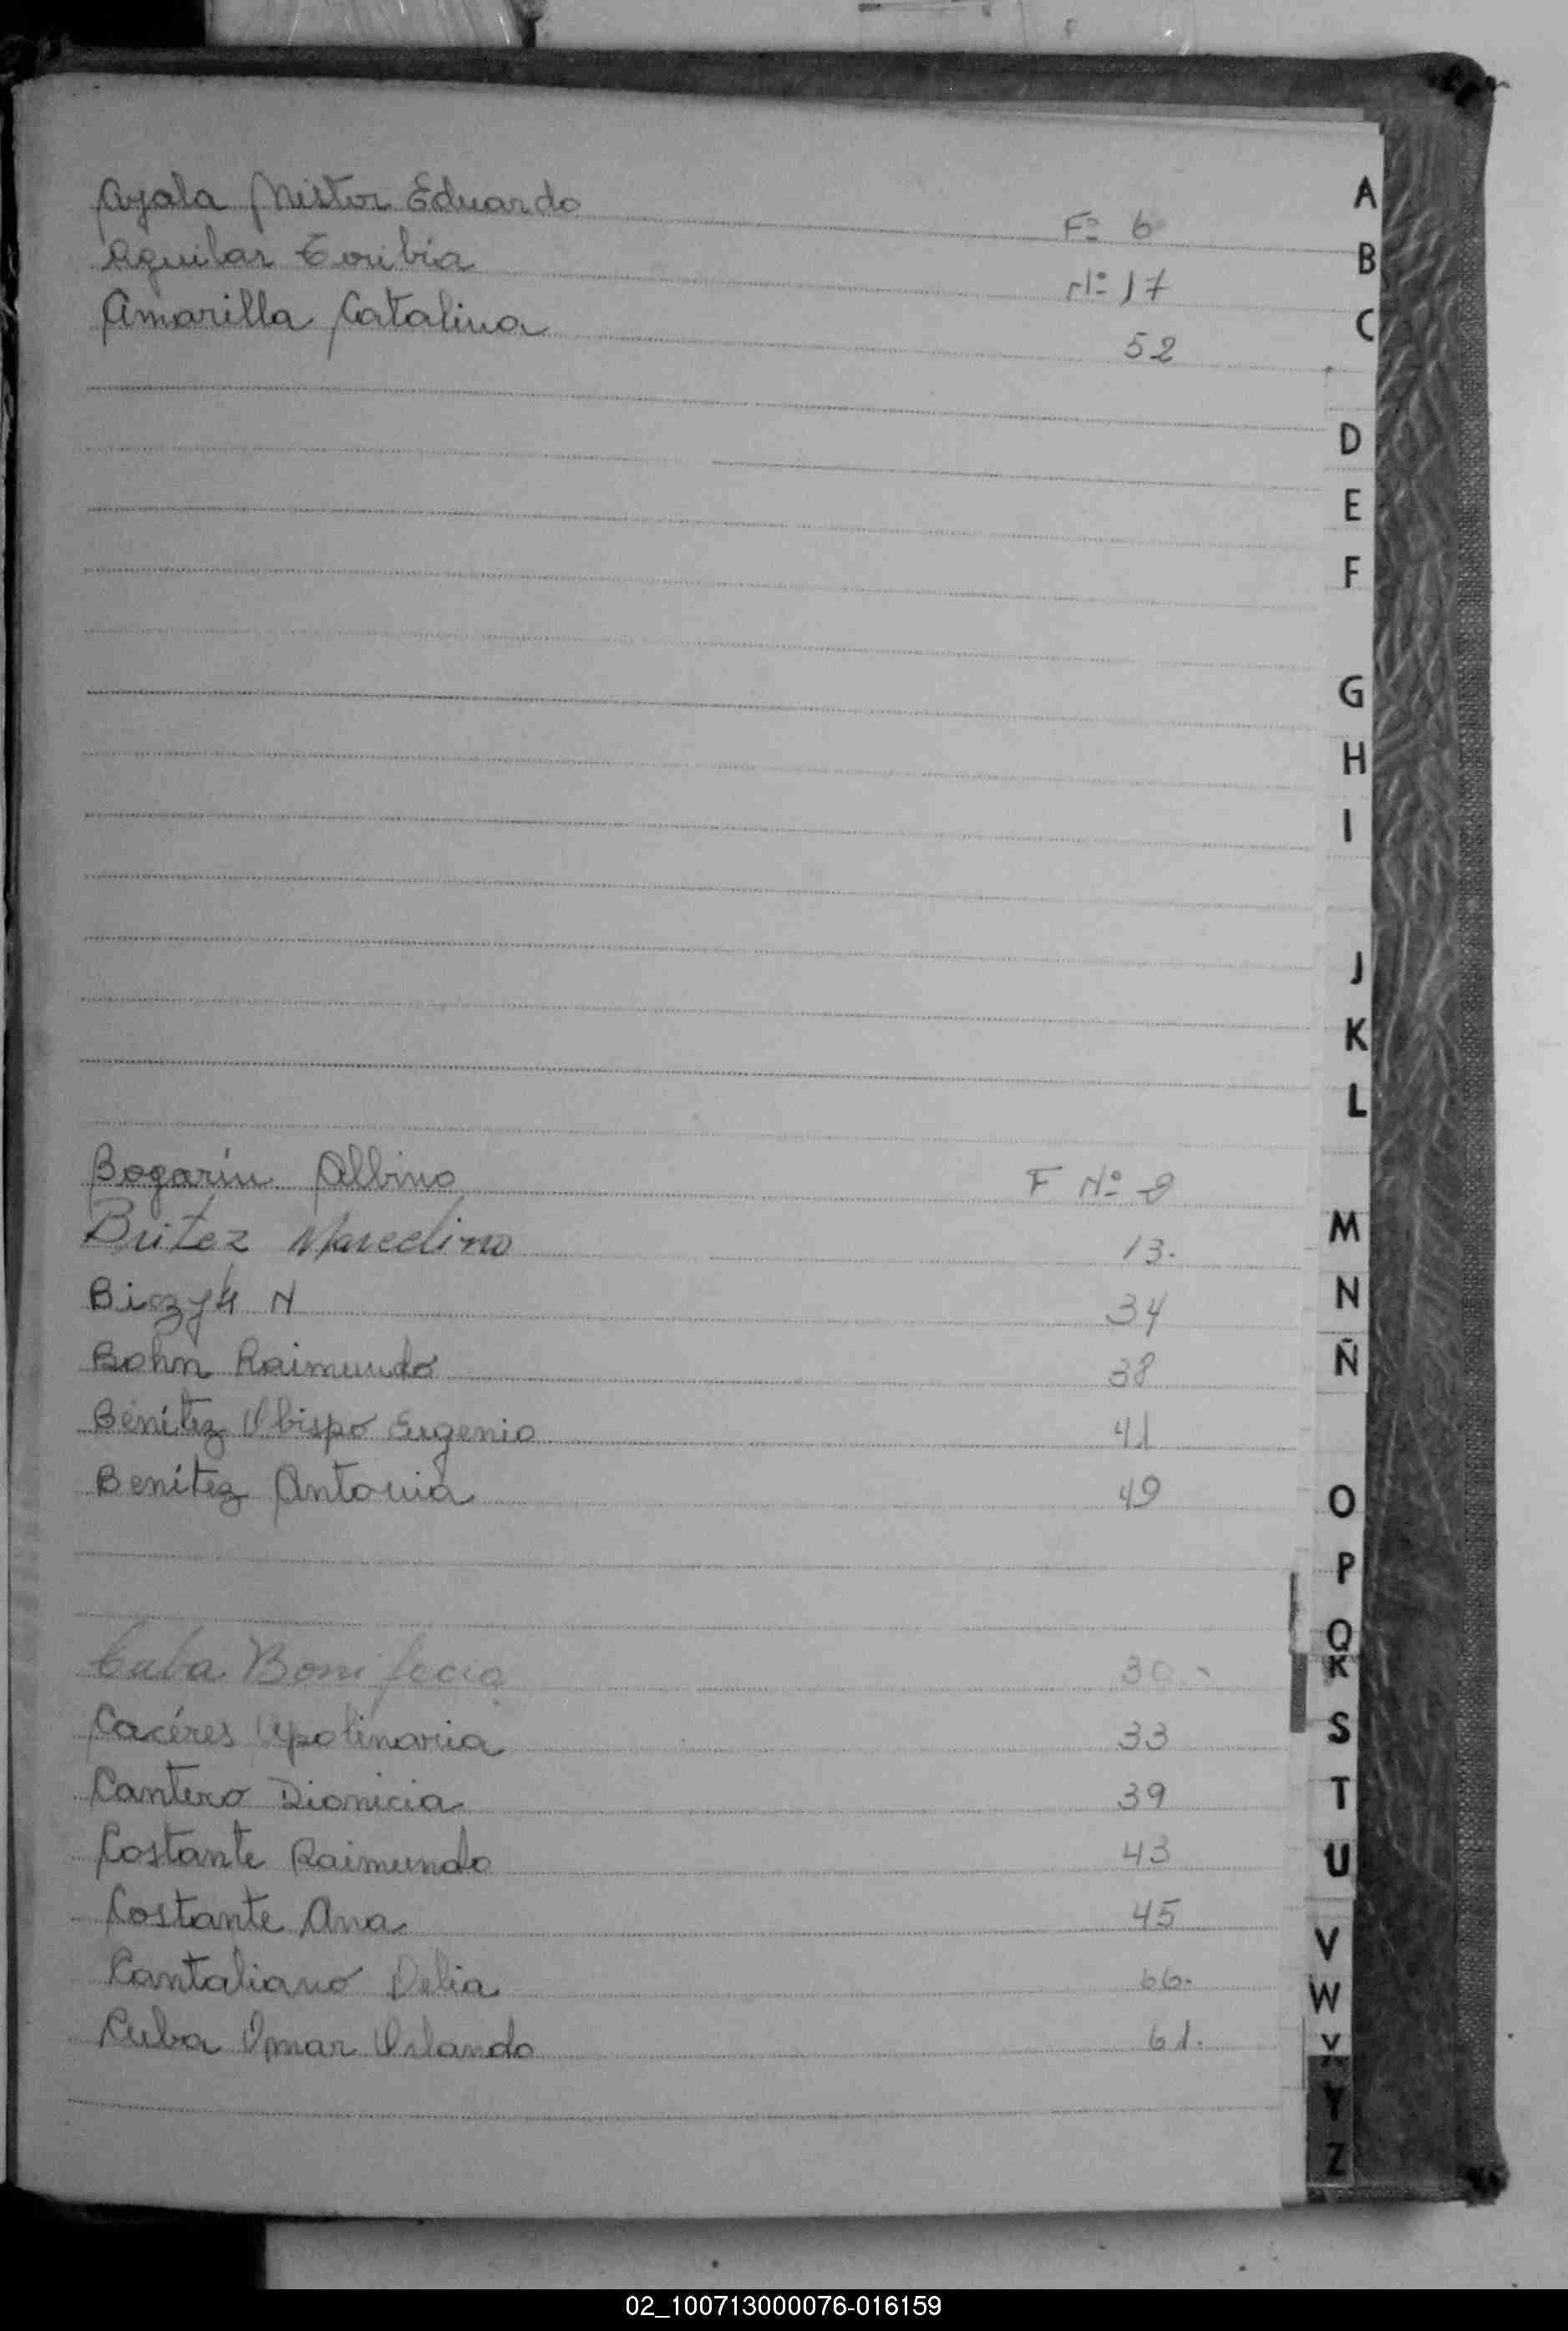 Ayala Nestor Eduardo F= 6
Aguilar Toribia Nº 17
Amarilla Catalina 52
Bogarin Albino F Nº 9
Britez Marcelino 13.
Biczyk N 34
Bohn Raimundo 38
Benítez Obispo Eugenio 41
Benítez Antonia 49
Cuba Bonifacia 30.-
Cacéres Apolinaria 33
Cantero Dionicia 39
Costante Raimundo 43
Costante Ana 45
Cantaliano Delia 66.
Cuba Omar Orlando 61.
A
B
C
D
E
F
G
H
I
J
K
L
M
N
Ñ
O
P
Q
R
S
T
U
V
W
X
Y
Z
02_100713000076-016159